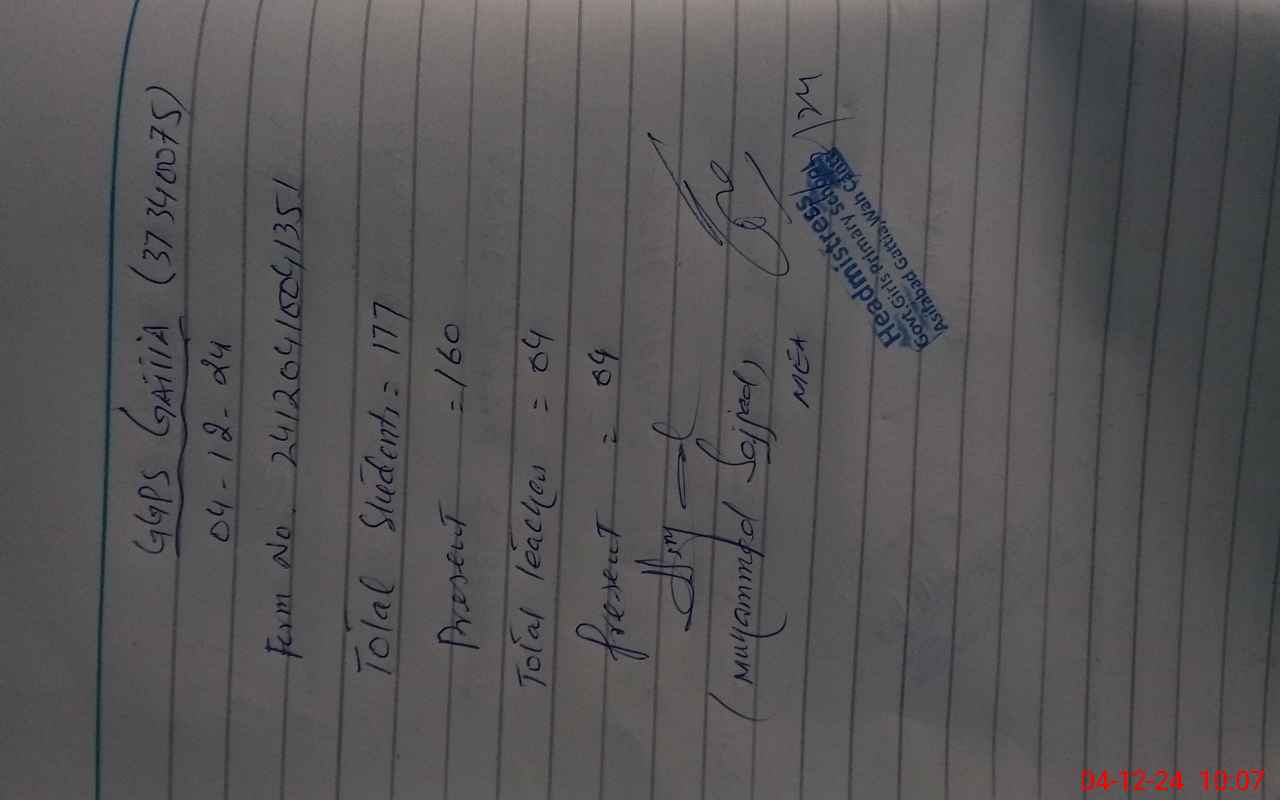 GGPS GATTIA (37340075)
04-12-24
Form No. 241204100041351
Total Students = 177
Present = 160
Total Teacher = 04
Present = 04
(Muhammad Sajjad)
MEA
Headmistress
Govt. Girls Primary School
Asifabad Gattia, Wah Cantt
04-12-24 10:07